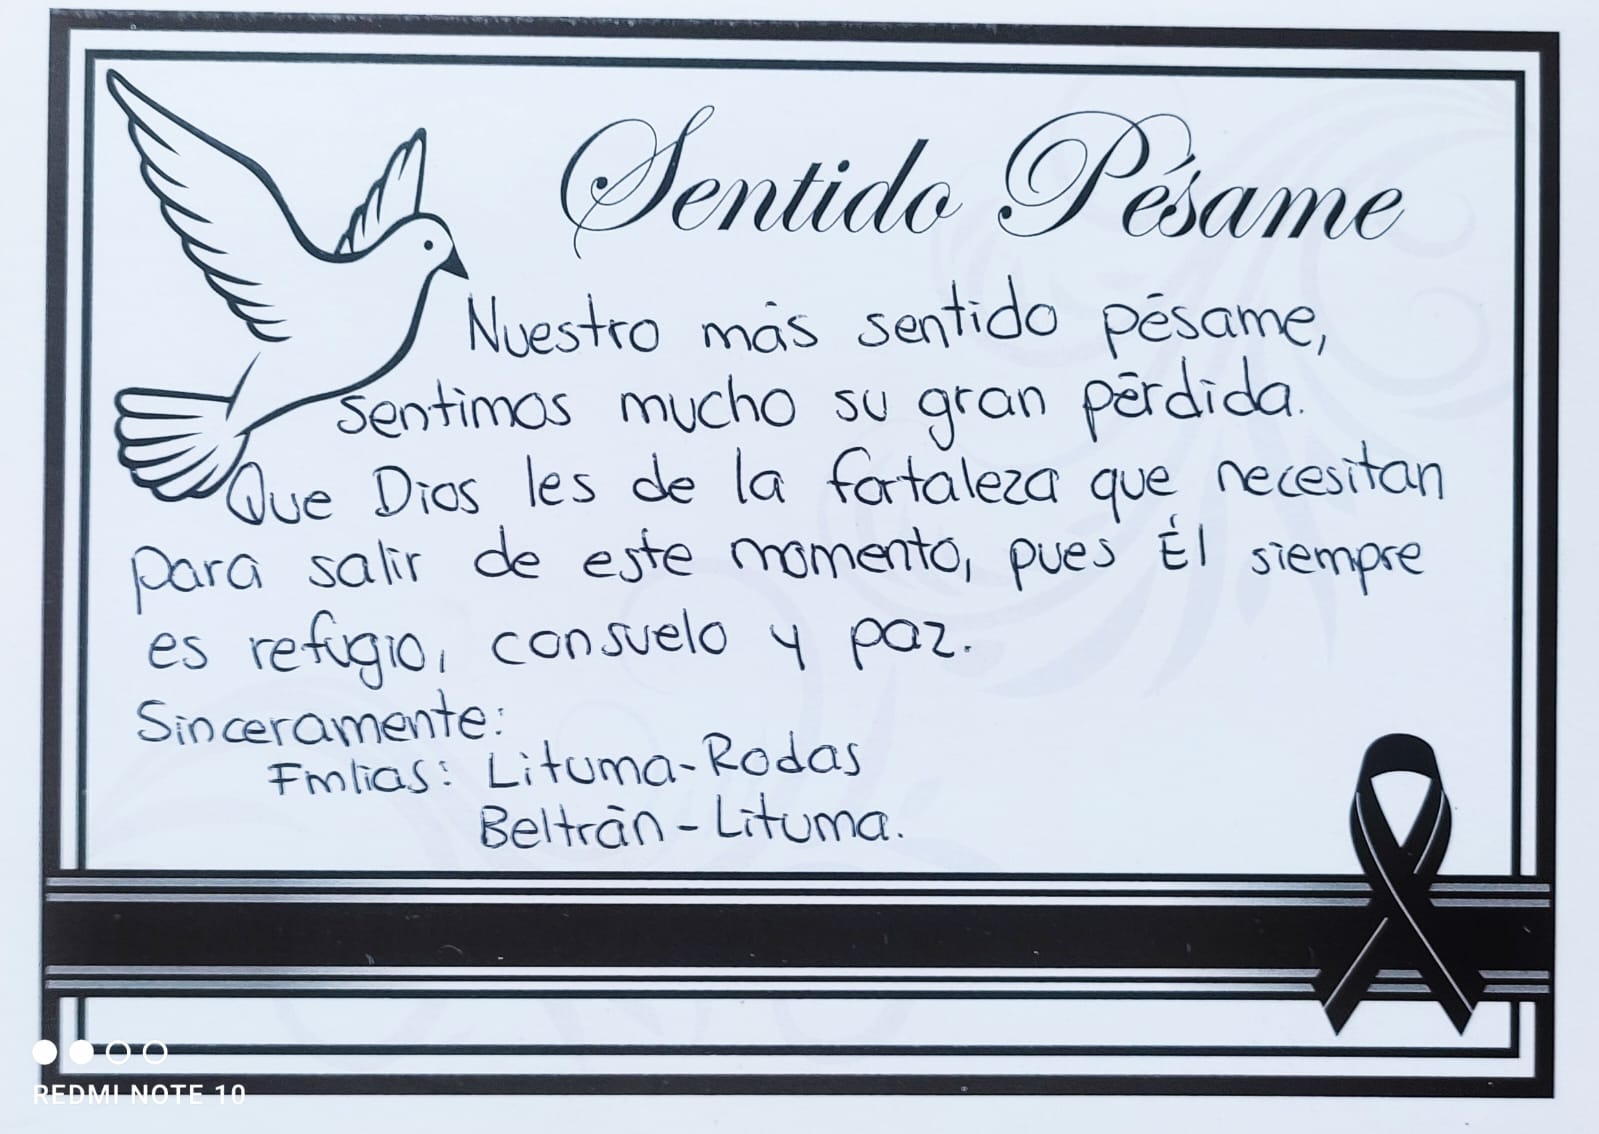 Sentido Pésame
Nuestro más sentido pésame,
sentimos mucho su gran pérdida.
Que Dios les de la fortaleza que necesitan
para salir de este momento, pues Él siempre
es refugio, consuelo y paz.
Sinceramente:
Fmlias: Lituma-Rodas
Beltrán-Lituma.
REDMI NOTE 10